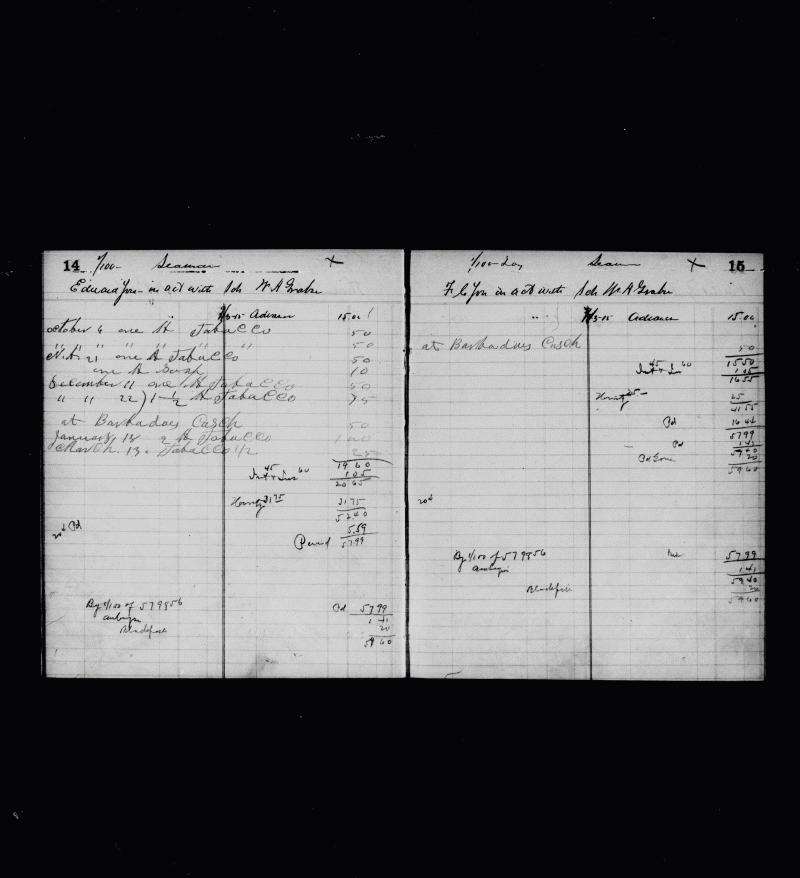 14 1/100- Seaman X
in act with Sch W A
3-15 Advance 15.00
october 6 one lb Tabacco 50
" " " " " " 50
21 one lb Tabacco 50
one lb 10
December 11 one lb Tabacco 50
" " 22) 1-1/2 lb Tabacco 75
at Barbadoes Casch 50
January 13 2 lb Tabacco 1 00
March. 13. Tabacco 1/2 25
19 60
45 60
Int + Ins 1 05
20 65
31 75 31 75
52 40
5.59
Paid 57 99
20 Pd
By 1/100 of 5798 56 Pd 57 99
1 41
Blackfish 20
59 60
1/100 - Lay Seaman X 15
in act with Sch W A
" 3-15 Advance 15.00
at Barbadoes Casch 50
15 50
45 60
Int + Ins 1 05
16 55
25 - 25
41 55
Pd 16 44
57 99
Pd 1 41
59 40
Pd 20
59 60
20
By 1/100 of 5798 56 57 99
1 41
59 40
Blackfish 20
59 60